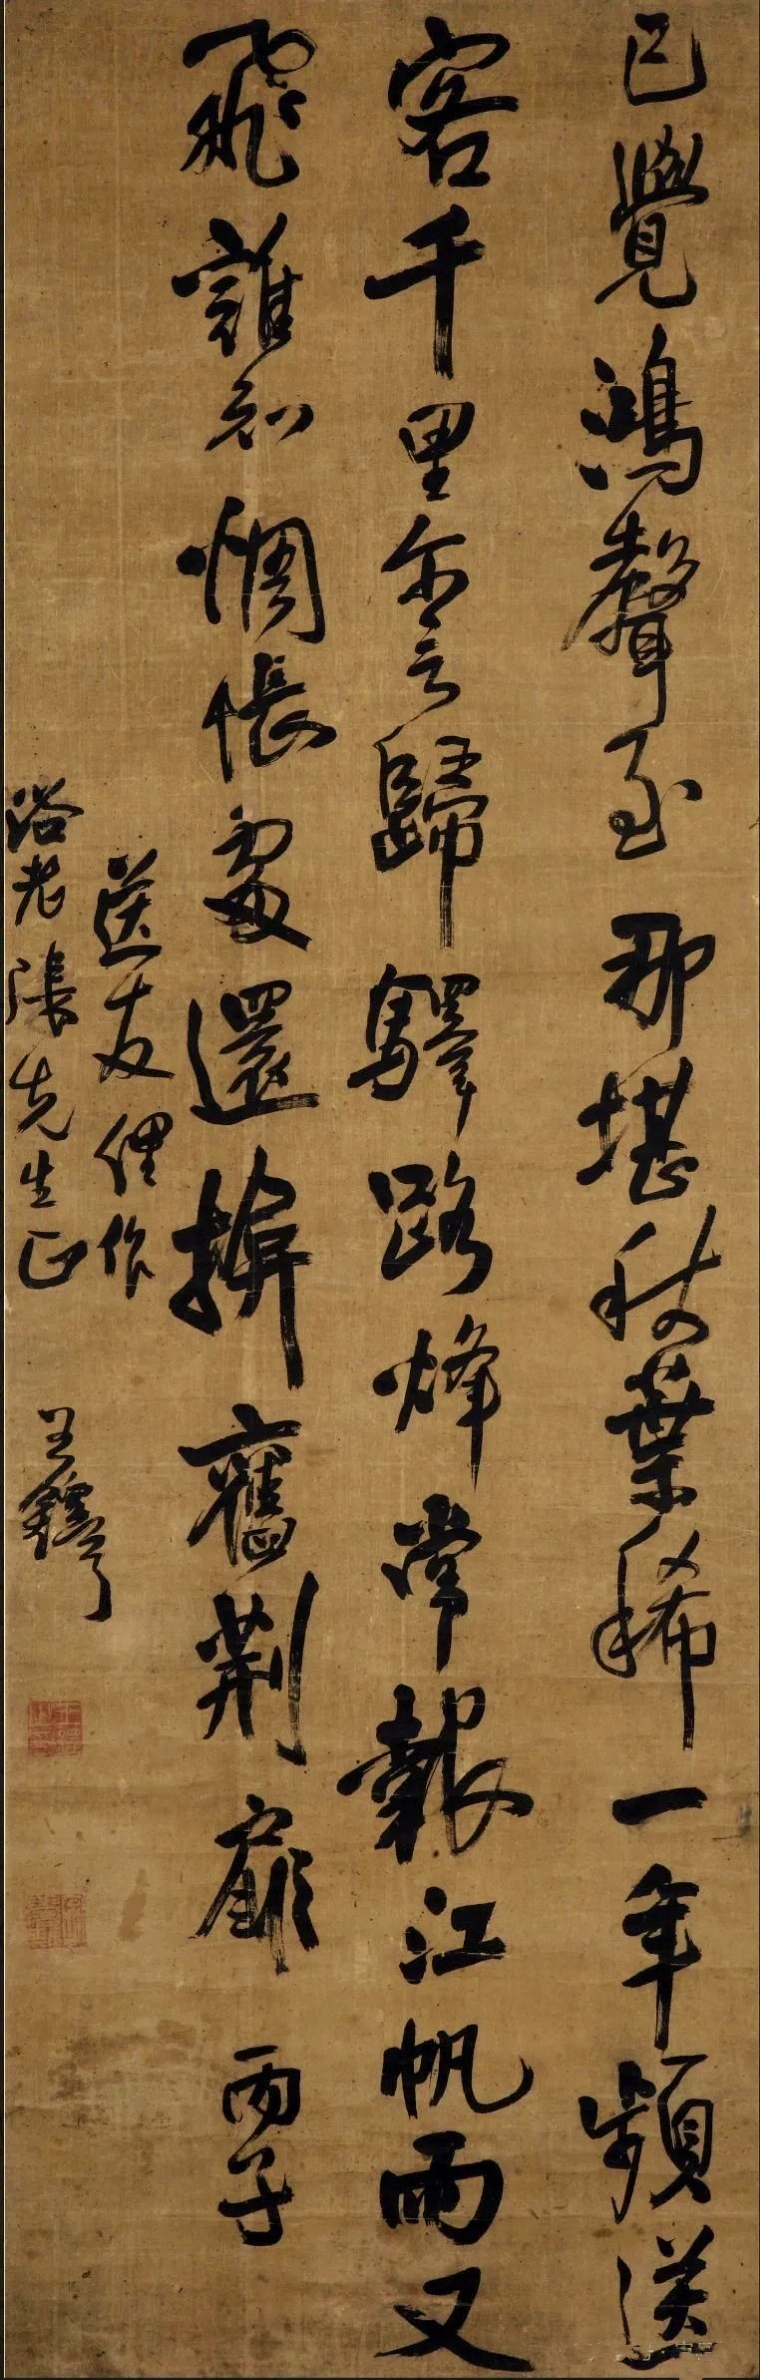 已覺鴻聲至那堪秋葉稀一年頻送
客千里尔言歸驛路烽常報江帆雨又
飛誰知惆悵處還揜舊荊扉 丙子
送友俚作
浴老張先生正 王鐸